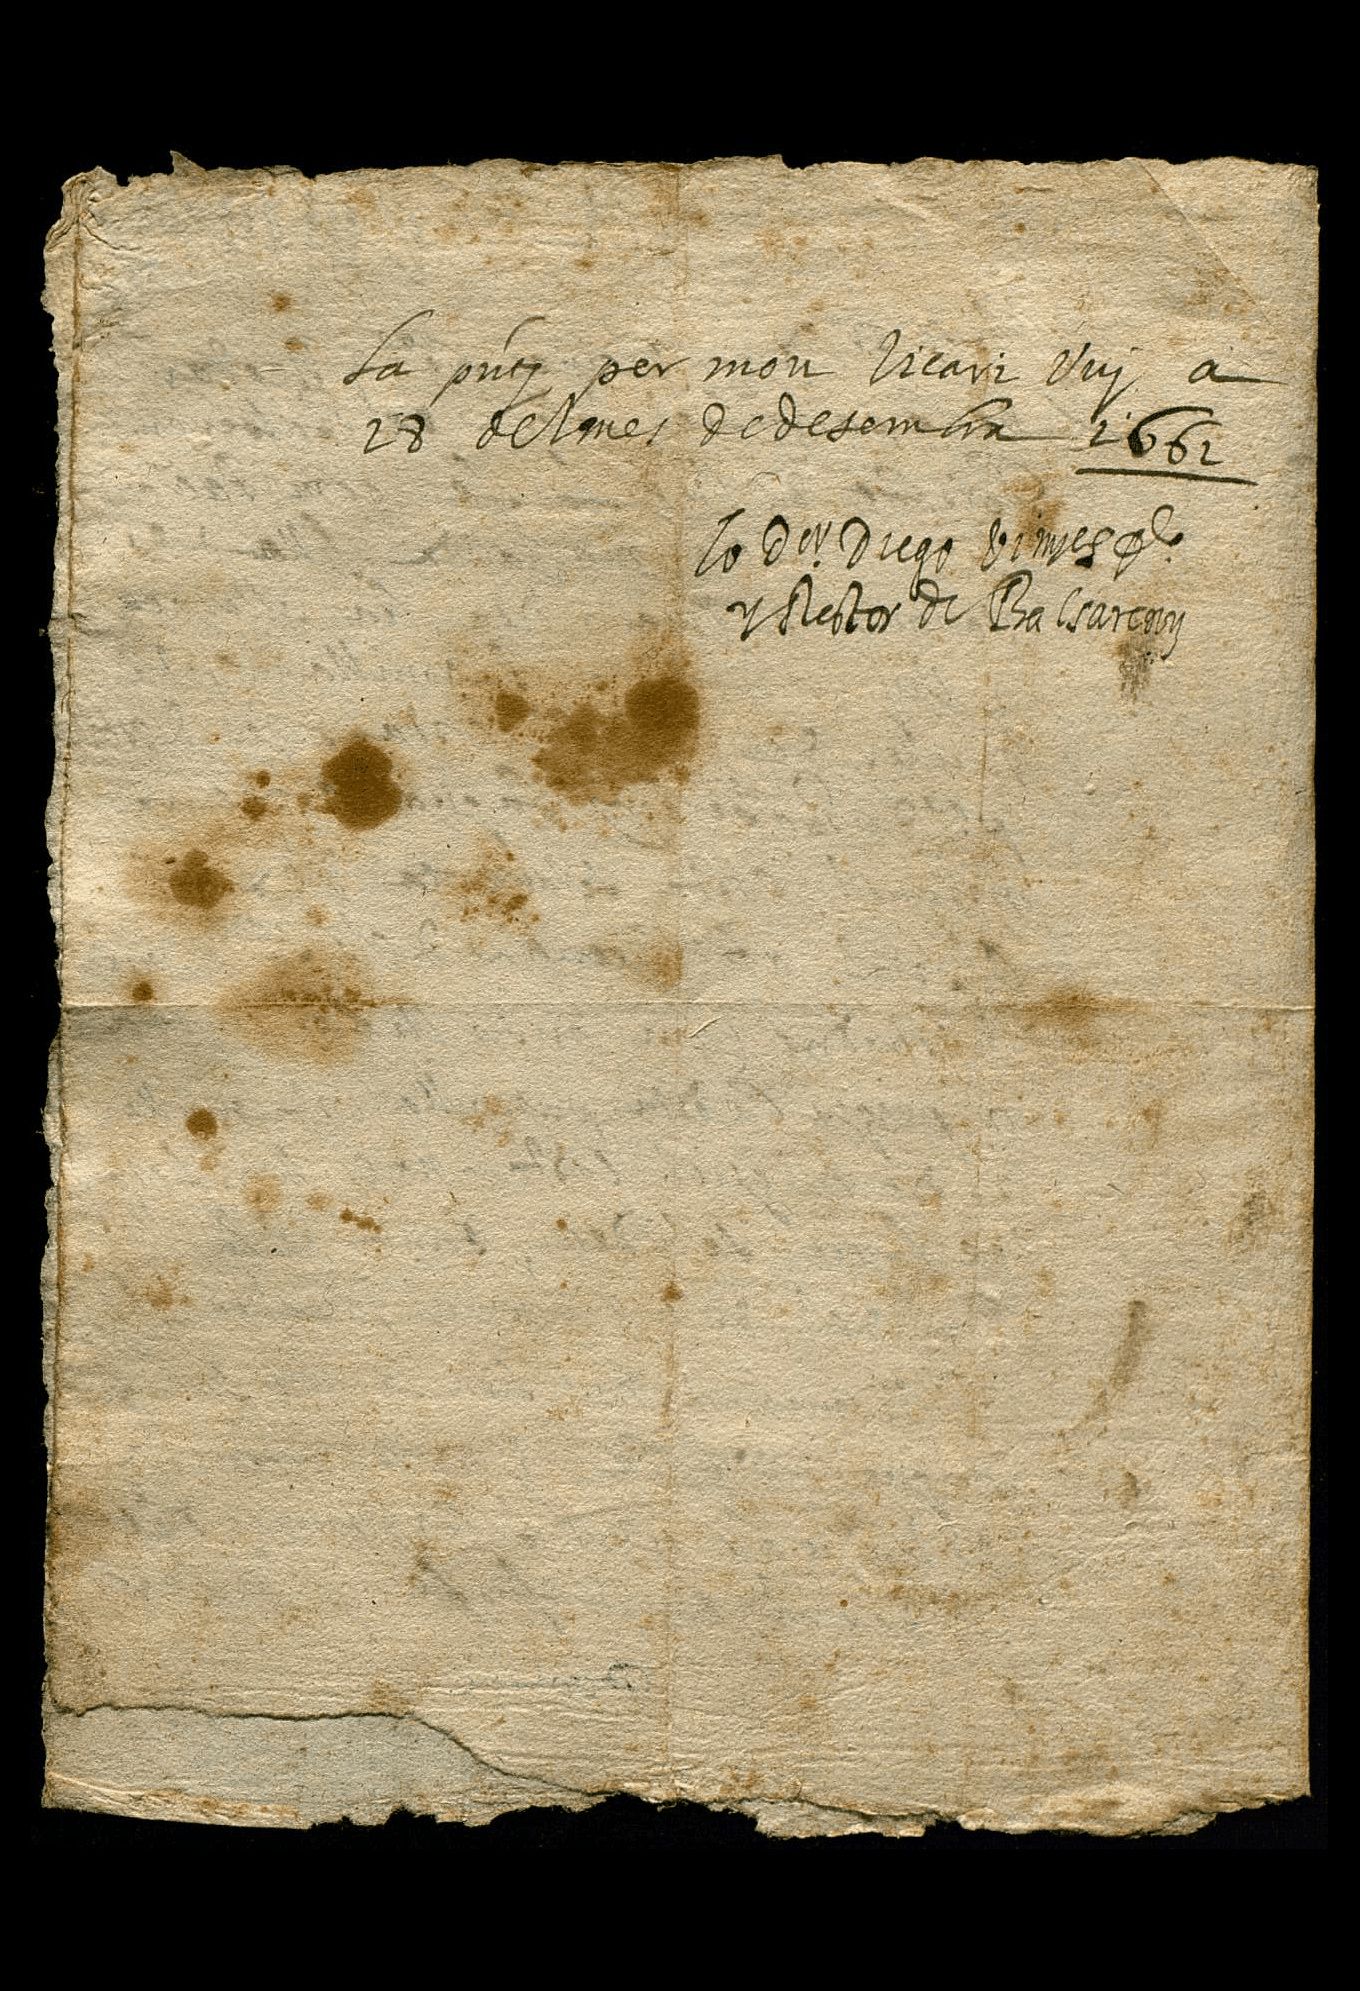 la pnt per mon Vicari Vuy a
28 del mes de desembra 1662
Jo Dor. Diego Vinyes
y Rector de Balsareny